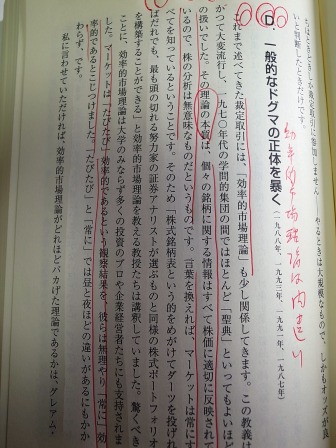 ちはときどきしか裁定取引に参加しません
やるときは大規模なもので、しかもオッズは良
いと判断したときだけです。
D. 一般的なドグマの正体を暴く（一九八八年、一九九三年、一九九一年、一九八七年）
効率的市場理論は間違い
これまで述べてきた裁定取引には、「効率的市場理論」も少し関係してきます。この教義は
かつて大変流行し、一九七〇年代の学問的集団の間ではほとんど「聖典」といってもよいほど
の扱いでした。その理論の本質は、個々の銘柄に関する情報はすべて株価に適切に反映されて
いるので、株の分析は無意味なものだというものです。言葉を換えれば、マーケットは常にす
べてを知っているということです。そのため「株式銘柄表という的をめがけてダーツを投げれ
ばだれでも、最も頭の切れる努力家の証券アナリストが選ぶものと同様の株式ポートフォリオ
を構築することができる」と効率的市場理論を教える教授たちは講釈していました。驚くべき
ことに、効率的市場理論は大学のみならず多くの投資のプロや企業経営者たちにも支持されま
した。マーケットは「たびたび」効率的であるという観察結果を、彼らは無理やり「常に」効
率的であるとこじつけました。「たびたび」と「常に」では昼と夜ほどの違いがあるにもかか
わらず、です。
私に言わせていただければ、効率的市場理論がどれほどバカげた理論であるかは、グレアム・